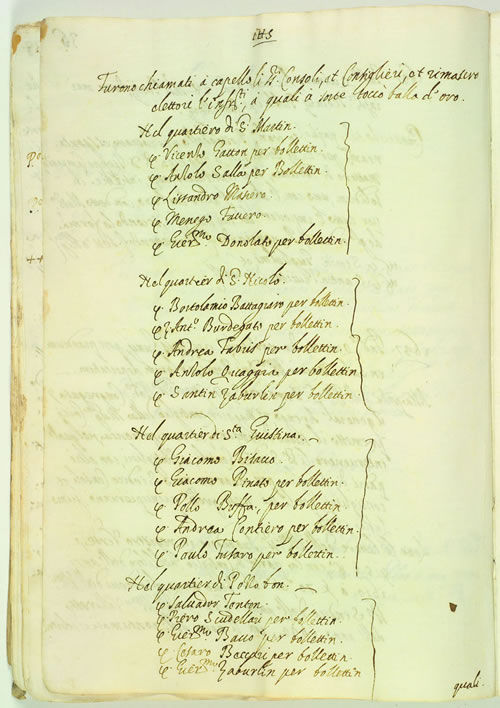 Furono chiamati à capello li SS.ri Consoli, et Consiglieri, et rimasero
elettori l'infr.ti, à quali à sorte toccò balla d'oro.
Nel quartiero di S. Martin.
Vicenzo Gatton per bollettin.
Anzolo Salla per Bollettin.
Lissandro Masiero.
Menego Favero.
Donolato per bollettin.
Nel quartier di S. Nicolò.
Bortolamio Battagiaro per bollettin.
Ant.o Burdegato per bollettin.
Andrea Fabris per bollettin.
Anzolo Quaggia per bollettin
Santin Zaburlin per bollettin
Nel quartier di S.ta Giustina.
Giacomo
Giacomo Pinato per bollettin.
Pollo Buffa, per bollettin
Andrea Contiero per bollettin.
Paulo per bollettin.
Nel quartier di Pollo
Salvador Tonton.
Piero Scudellari per bollettin.
Bacco per bollettin.
Cesaro per bollettin
Zaburlin per bollettin
quali.